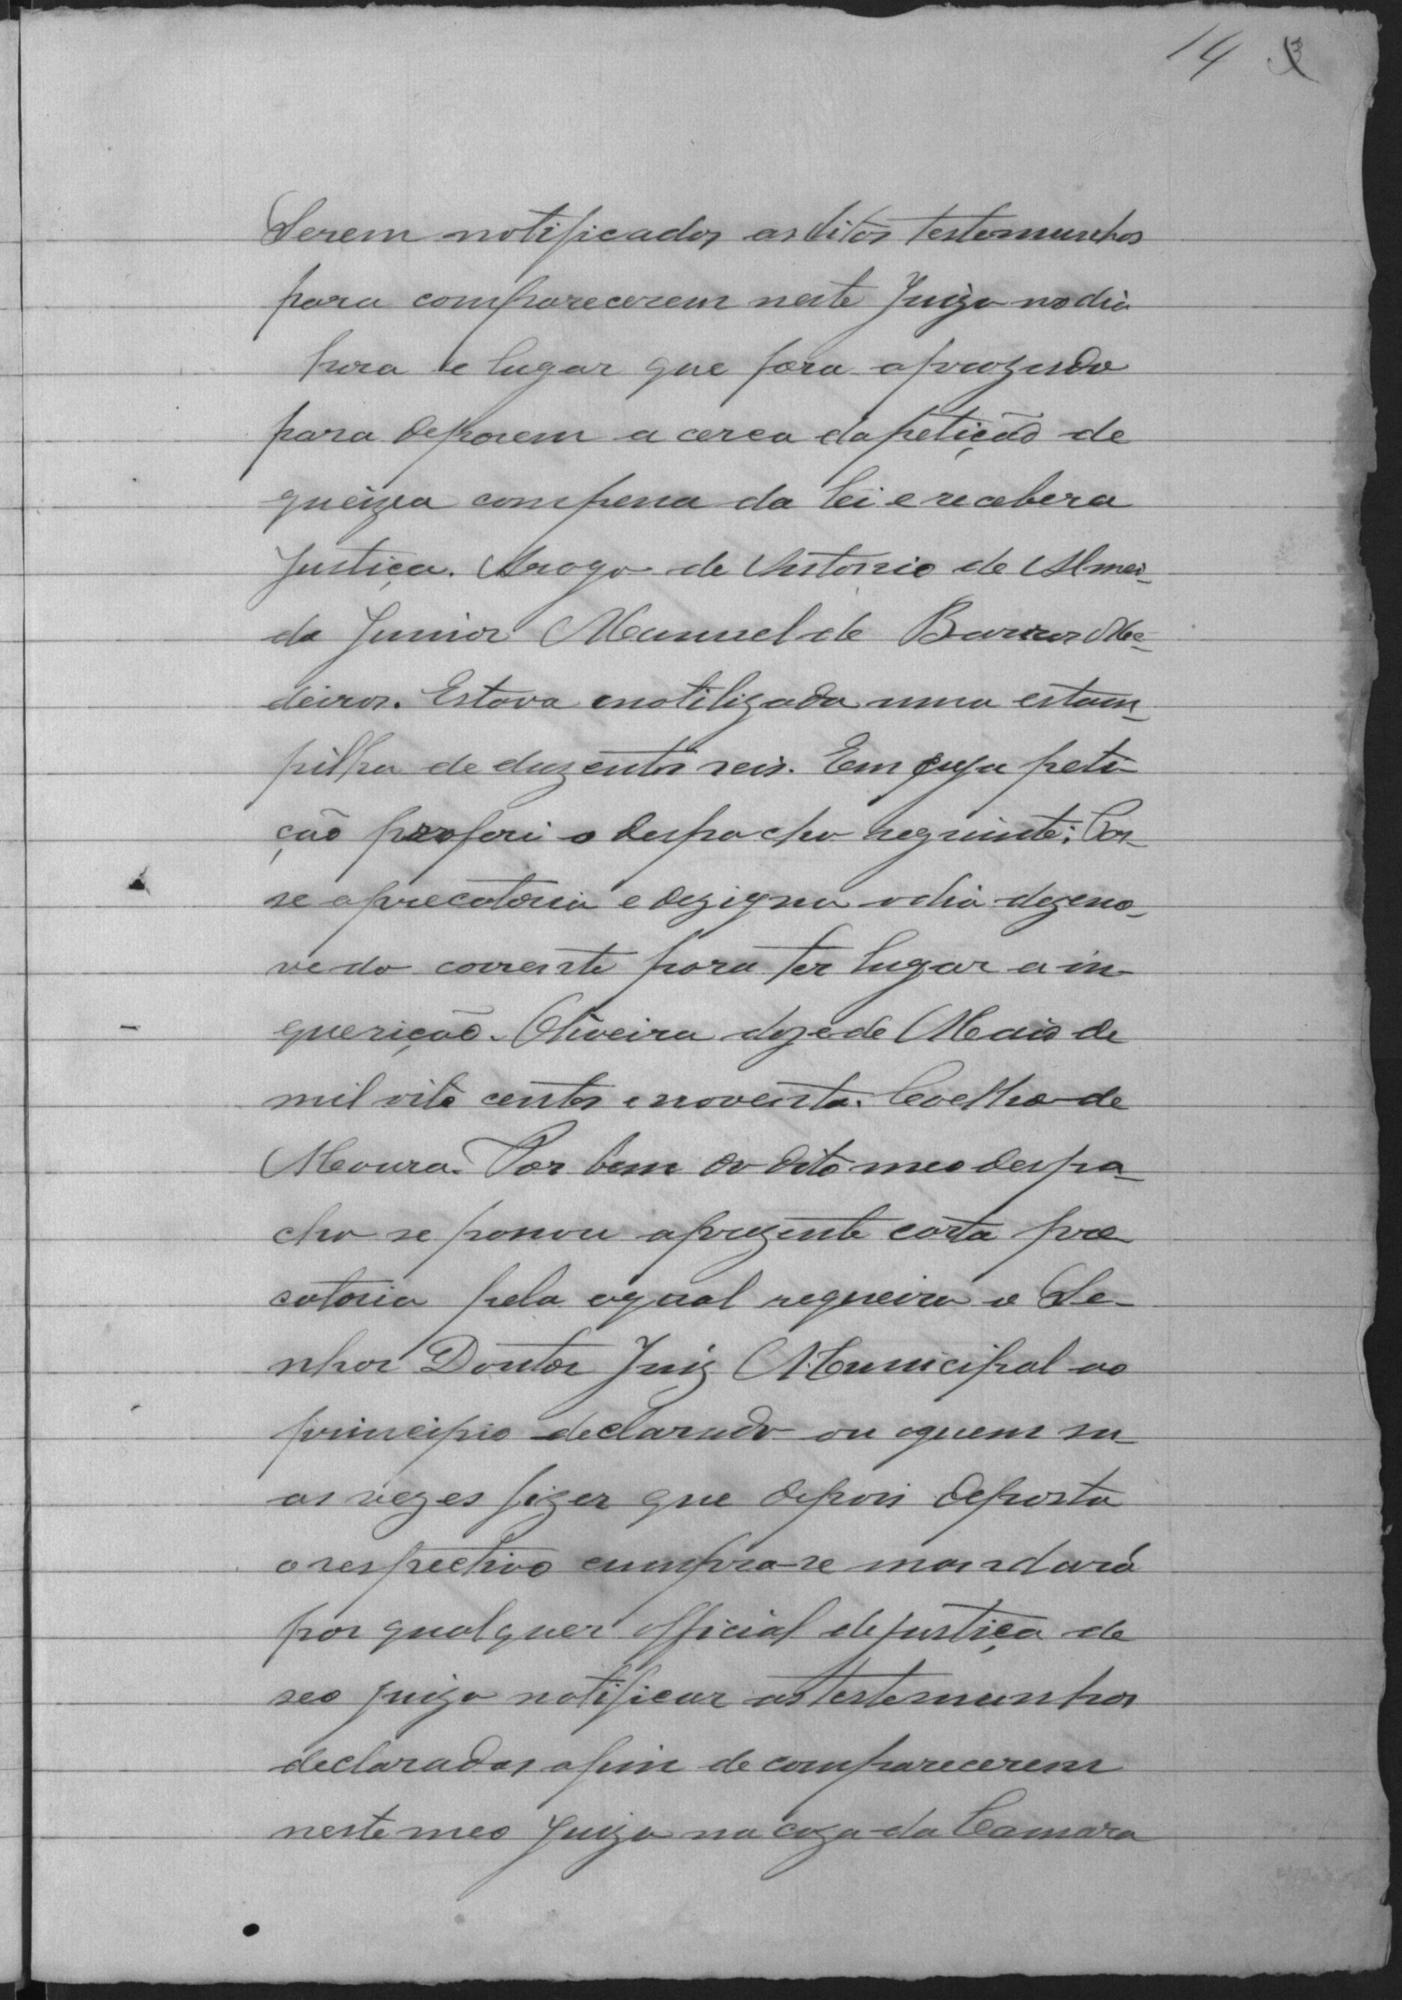 14
Serem notificados as ditas testemunhas
para comparecerem neste Juizo no dia
hora e lugar que fora aprazado
para deporem a cerca da petição de
queixa com pena da lei e recebera
Justiça. Arogo de Antonio de Almei-
da Junior Manuel de Barros Me-
deiros. Estava inotilizada uma estam-
pilha de duzentos reis. Em cuja peti-
ção proferi o despacho seguinte: Pas-
se a precatoria e dezigno o dia dezeno-
ve do corrente para ter lugar a in-
querição. Oliveira doze de Maio de
mil oito centos e noventa. Coelho de
Moura. Por bem do dito meo despa-
cho se passou a prezente carta pre-
catoria pela a qual requeiro o Se-
nhor Doutor Juiz Municipal no
principio declarado ou aquem su-
as vezes fizer que depois deposta
o respectivo cumpra-se mandará
por qualquer official de justiça de
seo juizo notificar as testemunhas
declaradas afim de comparecerem
neste meo Juizo na caza da Camara